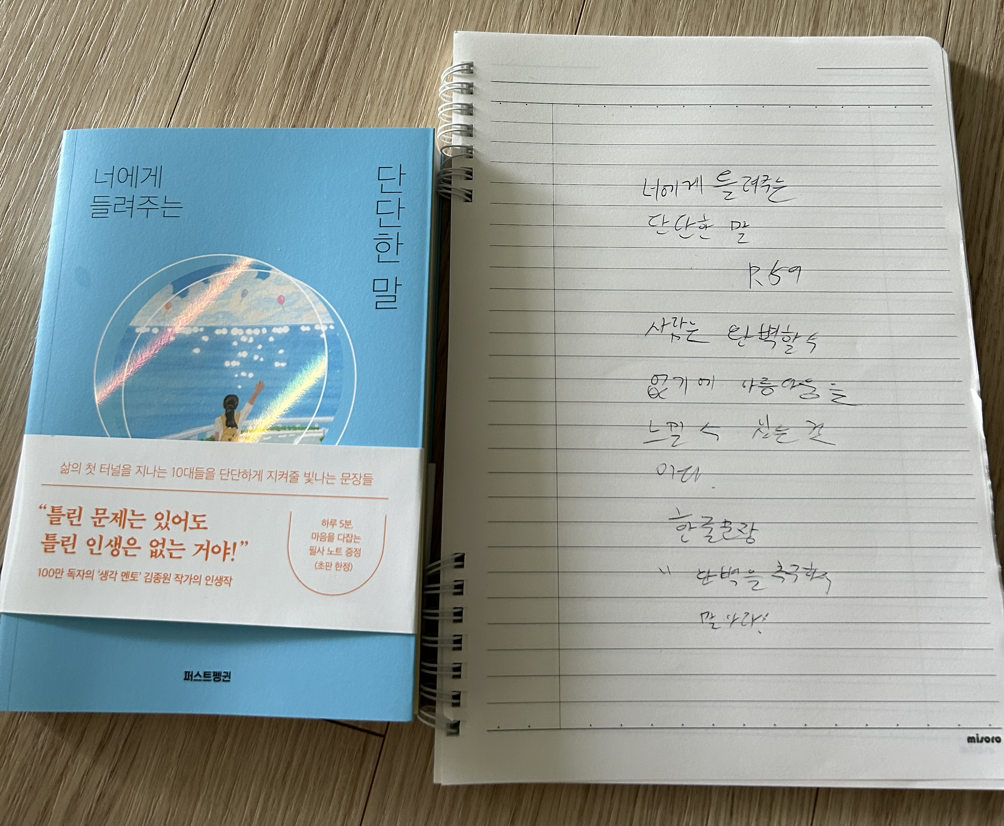 너에게
들려주는
단단한 말
삶의 첫 터널을 지나는 10대들을 단단하게 지켜줄 빛나는 문장들
“틀린 문제는 있어도
틀린 인생은 없는 거야!”
100만 독자의 ‘생각 멘토’ 김종원 작가의 인생작
하루 5분,
마음을 다잡는
필사 노트 증정
(초판 한정)
퍼스트펭귄
너에게 들려주는
단단한 말
P.59
사람은 완벽할 수
없기에 아름다움을
느낄 수 있는 것
이다.
한글문장
" 완벽을 추구하
말
misoro